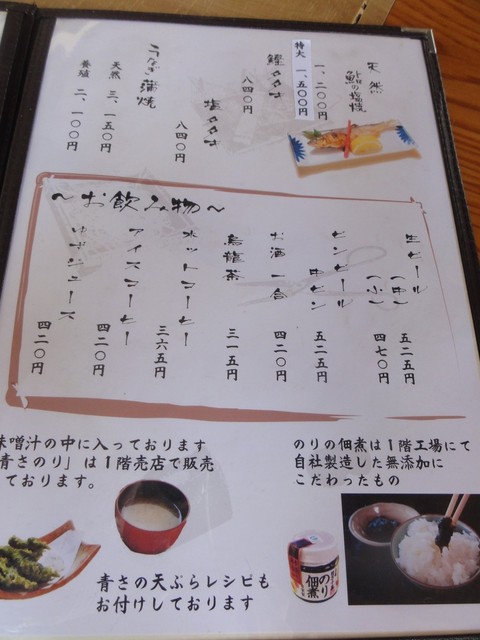 天然
鮎の塩焼
一、二〇〇円
特大 一、五〇〇円
鰹たたき
八四〇円
塩たたき
八四〇円
うなぎ蒲焼
天然 三、一五〇円
養殖 二、一〇〇円
～お飲み物～
生ビール
（中） 五二五円
（小） 四七〇円
ビンビール
中ビン 五二五円
お酒一合 四二〇円
烏龍茶 三一五円
ホットコーヒー 三六五円
アイスコーヒー 四二〇円
ゆずジュース 四二〇円
味噌汁の中に入っております
青さのり」は1階売店で販売
しております。
青さの天ぷらレシピも
お付けしております
のりの佃煮は1階工場にて
自社製造した無添加に
こだわったもの
のり
佃煮